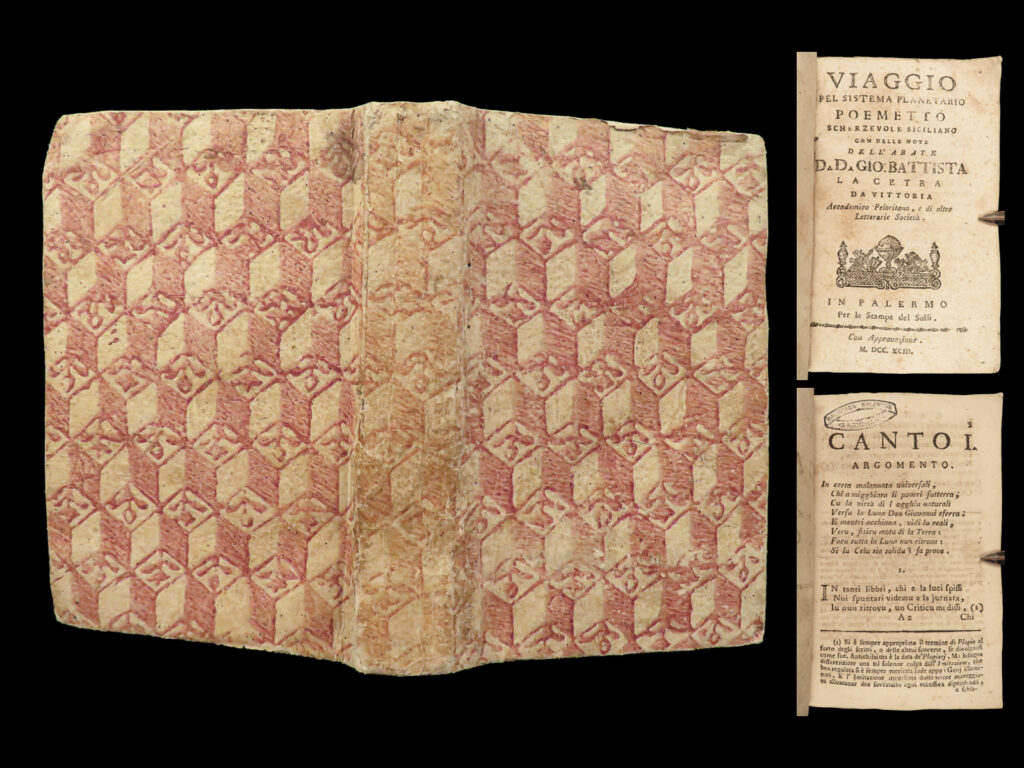 VIAGGIO
PEL SISTEMA PLANETARIO
POEMETTO
SCHERZEVOLE SICILIANO
CON DELLE NOTE
DELL'ABATE
D. D. GIO: BATTISTA
LA CETRA
DA VITTORIA
Accademico Peloritano, e di altre
Letterarie Società.
IN PALERMO
Per le Stampe del Solli.
Con Approvazione.
M. DCC. XCIII.
CANTO I.
ARGOMENTO.
In certa malannata universali,
Chi a migghiara li poveri sutterra;
Cu la virtù di l'ogghiu naturali
Versu la Luna Don Giuvanni sferra:
E mentri acchiana, vidi lu reali,
Veru, fisicu motu di la Terra:
Focu sutta la Luna nun ritrova:
Si lu Celu sia solidu fa prova.
1.
IN tanti libbri, chi a la luci spissi
Nui spuntari videmu a la jurnata,
Iu nun ritrovu, un Criticu mi dissi, (1)
A 2 Chi
(1) Si è sempre appropriato il termine di Plagio al
furto degli scritti, o delle altrui scoverte, se divolgarsi
come sue. Antichissima è la data de' Plagiarj. Ma bisogna
differenziare una tal solenne colpa dall'Imitazione, che
ben regolata si è sempre meritata lode appo i Genj illumi-
nati. E l'Imitazione medesima dottamente maneggia-
ta allontanar dee sovratutto ogni eccessiva dipendenza,
e schia-